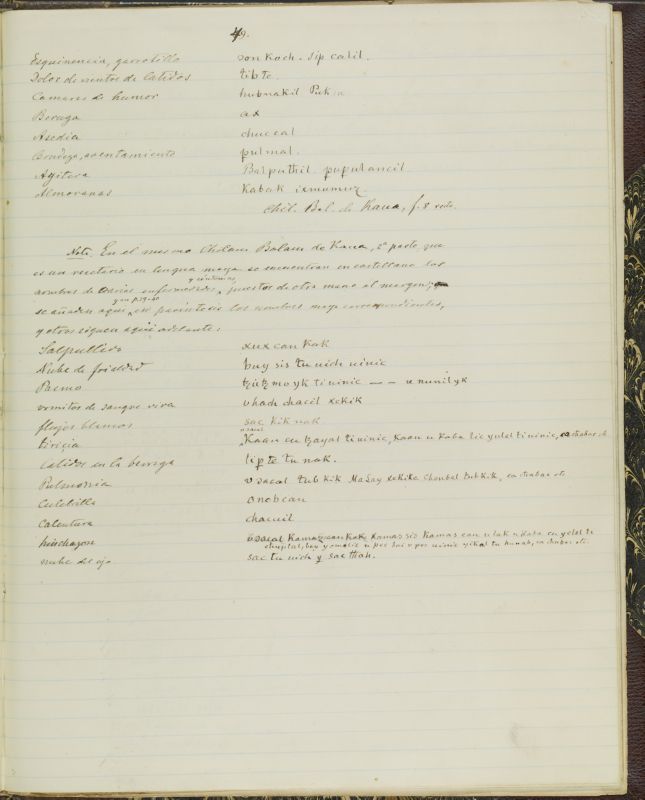 49.
Esquinencia, garrotillo sonkach. sip calil.
Dolor de vientre de latidos tibte.
Camaras de humor hubnakil Puk
Beruga ax
Asedia chuccal
asentamiento pulmal.
Ahitera Balpathil. pupulancil
Almoranas Kabak ixmumuz
Chil. Bal. de Kaua, f. 8 vedo.
Note. En el mismo Chilam Balam de Kaua, 2ª parte que
es un recetario en lengua maya se encuentran en castellano los
nombres de varias enfermedades y síntomas, puestos de otra mano al margen;
se añaden aqui, y en p. 39-40 en paréntesis los nombres maya correspondientes,
y otros siguen aqui adelante:
Salpullido xux can kak
Nube de frialdad buy sis tu uich uinic
Pasmo moyk ti uinic — — u nunil yk
vomitos de sangre viva u hach chacil xekik
flujos blancos sac kik nak
tiricia Kaan cu ti uinic, Kaan u Kaba lic yulel ti uinic, ca chabac etc
latidos en la barriga tipte tu nak.
Pulmonia u tub Kik Masay xekike choubel tub Kik, ca chabac etc
Culebrilla anobcan
Calentura chacuil
hinchazon Kamas sis Kamas can u lak u Kaba cu yelel te
chuplul, bay u poc uinic yikal tu hunab, ca chabac etc.
nube del ojo sac tu uich y sac thah.